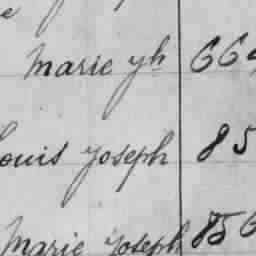 Marie yh 66
Louis Joseph 85
Marie Joseph 856